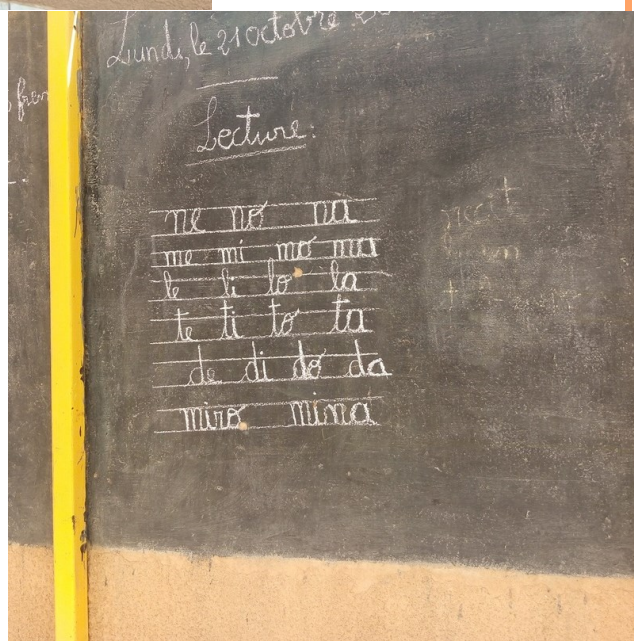 Lundi, le 21 octobre
Lecture:
ne no na
me mi mo ma
le li lo la
te ti to ta
de di do da
miro mina